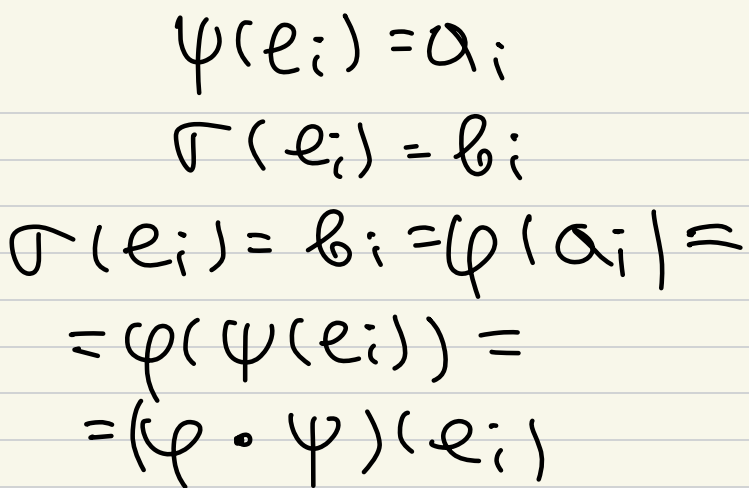 ψ(e_i) = a_i
σ(e_i) = b_i
σ(e_i) = b_i = φ(a_i) =
= φ(ψ(e_i)) =
= (φ · ψ)(e_i)